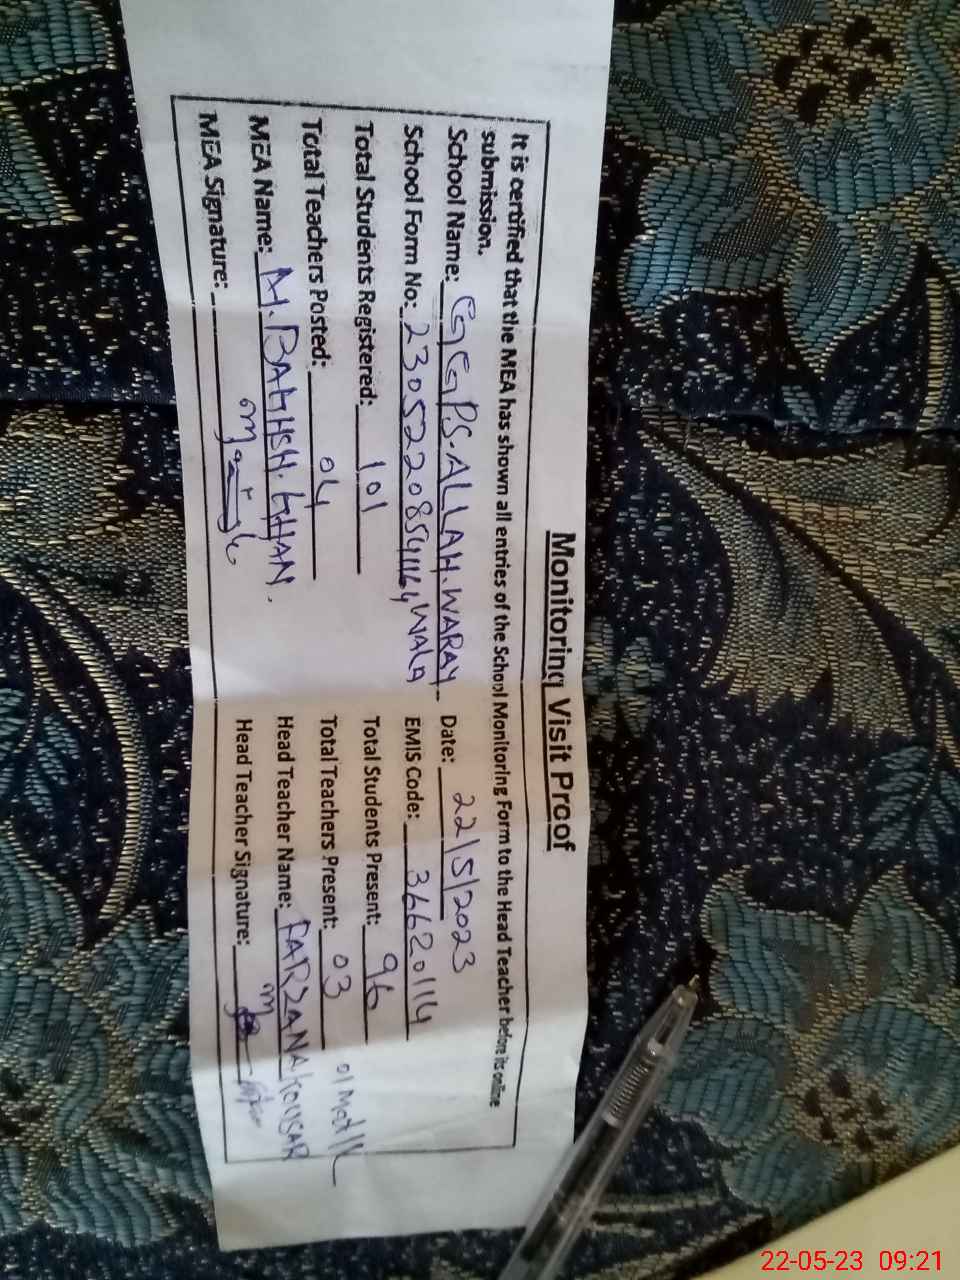 Monitoring Visit Proof
It is certified that the MEA has shown all entries of the School Monitoring Form to the Head Teacher before its online
submission.
School Name: GGPS.ALLAH.WARAY Date: 22/5/2023
WALA
School Form No: 23052208541164 EMIS Code: 36620114
Total Students Registered: 101 Total Students Present: 96
Total Teachers Posted: 04 Total Teachers Present: 03 01 Mat/L
MEA Name: M.BAKHSH.KHAN. Head Teacher Name: FARZANA KOUSAR
MEA Signature: Head Teacher Signature:
22-05-23 09:21